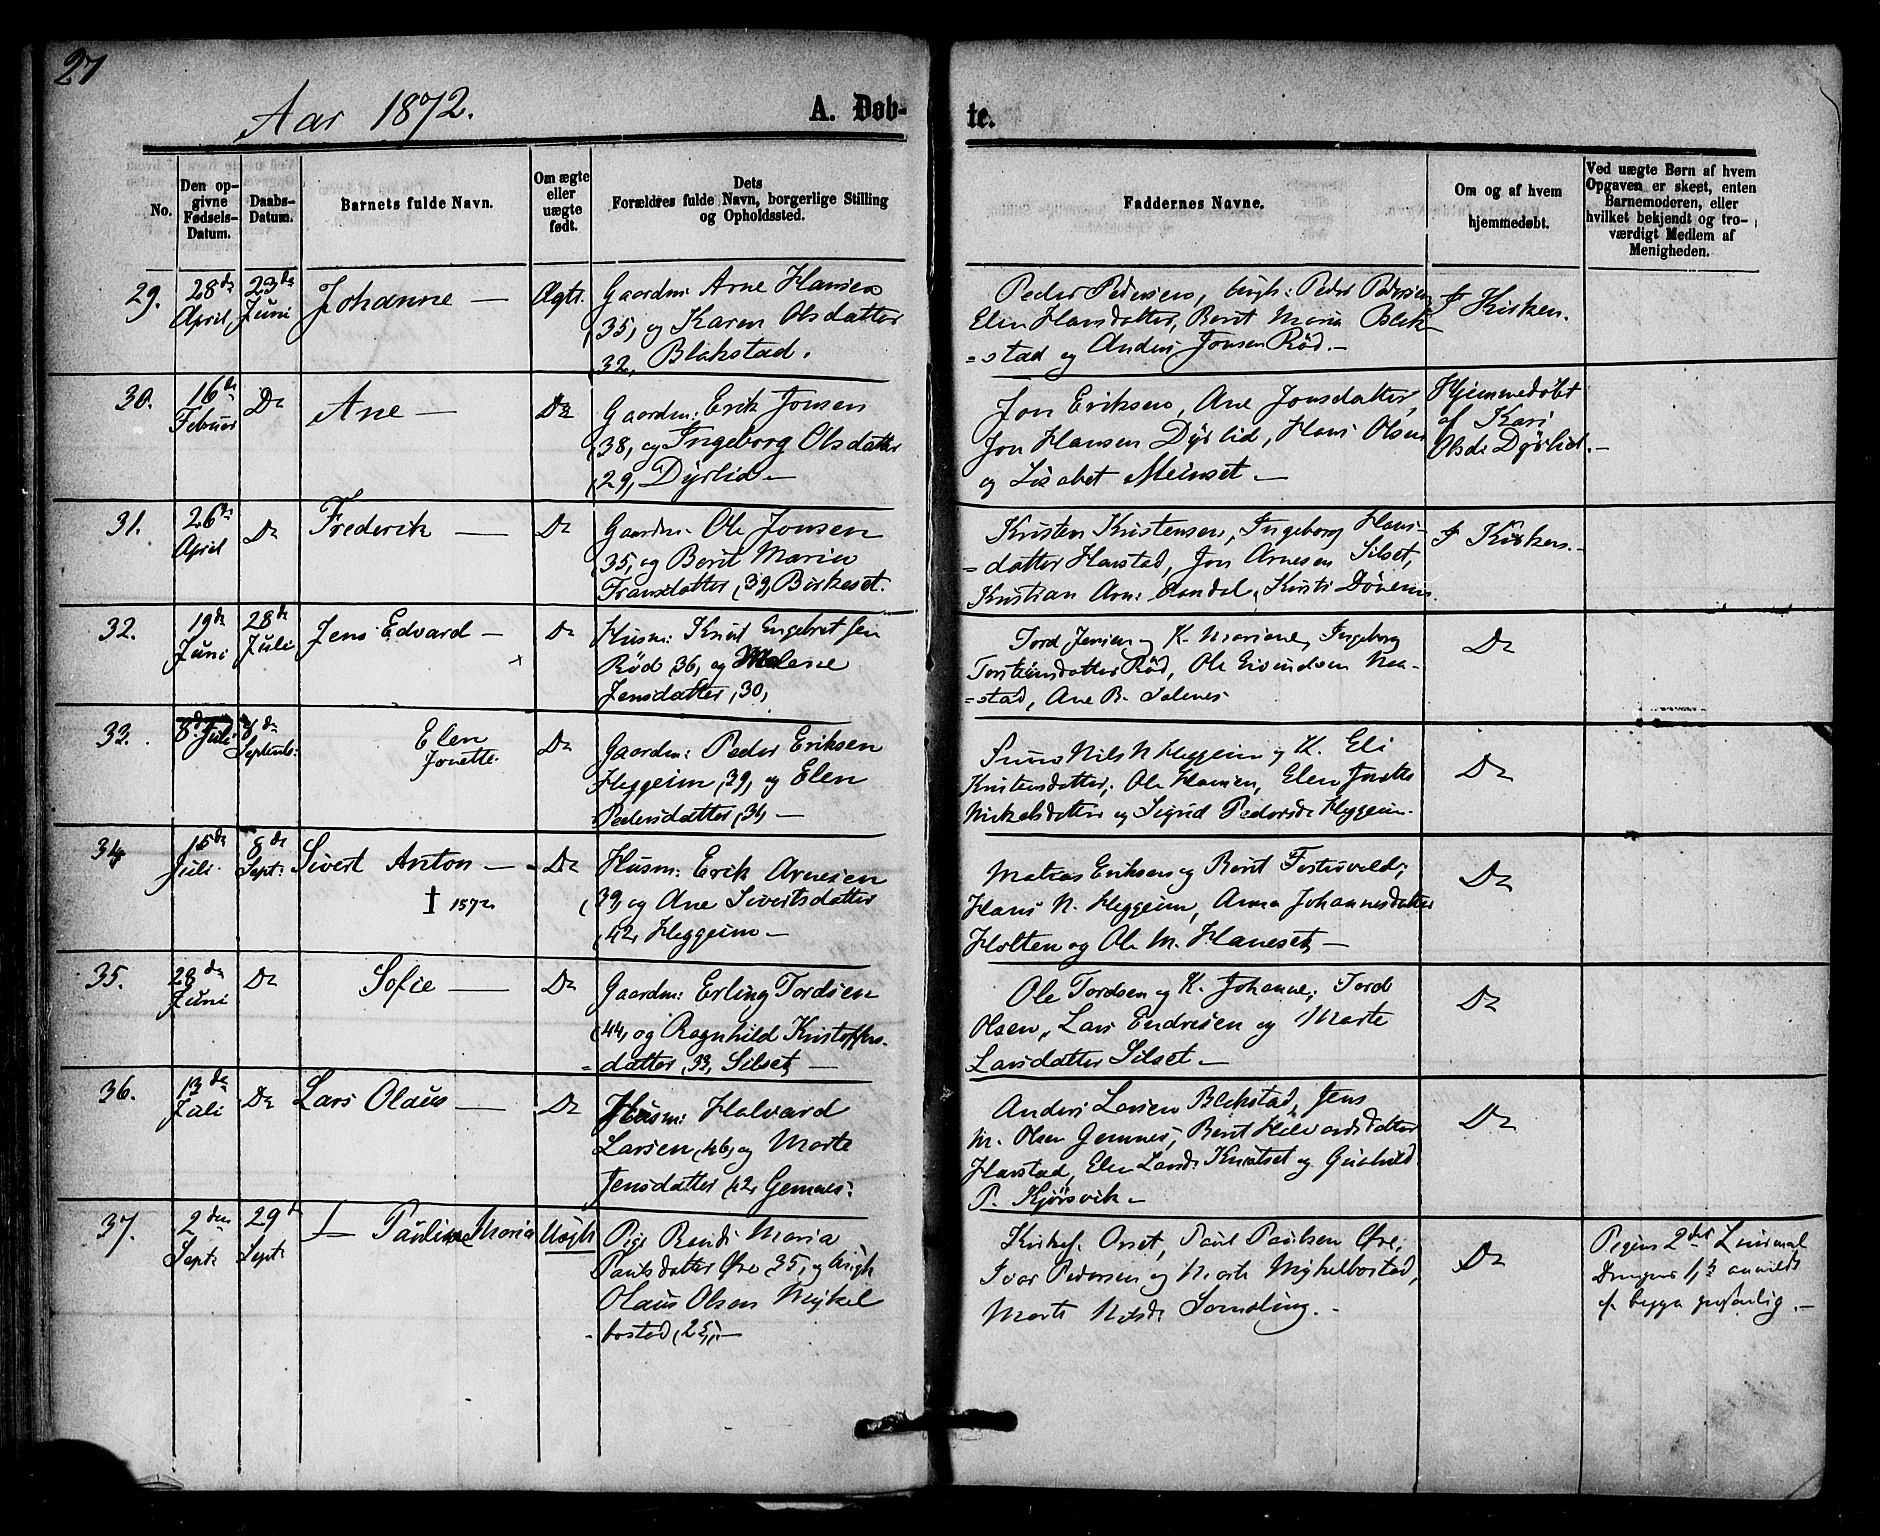 27
Aar 1872.
A. Døb-
te.
No.
Den op-
givne
Fødsels-
Datum.
Daabs-
Datum.
Barnets fulde Navn.
Om ægte
eller
uægte
født.
Dets
Forældres fulde Navn, borgerlige Stilling
og Opholdssted.
Faddernes Navne.
Om og af hvem
hjemmedøbt.
Ved uægte Børn af hvem
Opgaven er skeet, enten
Barnemoderen, eller
hvilket bekjendt og tro-
værdigt Medlem af
Menigheden.
29.
28de
April
23de
Juni
Johanne —
Ægte
Gaardm: Arne Hansen
35, og Karen Olsdatter
32, Blakstad.
Peder Pedersen, Peder Pedersen
Elen Hansdatter, Berit Maria Blak-
=stad og Anders Jonsen Rød. —
I Kirken.
30.
16de
Februar
Do
Ane —
Do
Gaardm: Erik Jonsen
38, og Ingeborg Olsdatter
29, Dyrlid —
Jon Eriksen, Ane Jonsdatter,
Jon Hansen Dyrlid, Hans Olsen
og Lisabet Meinset —
Hjemmedøbt
af Kari
Olsdr Dyrlid. —
31.
26de
April
Do
Frederik —
Do
Gaardm: Ole Jonsen
35, og Berit Maria
Fransdatter, 39, Birkeset.
Kristen Kristensen, Ingeborg Hans-
=datter Harstad, Jon Arnesen Silset,
Kristian Arn:
I Kirken. —
32.
19de
Juni
28de
Juli
Jens Edvard —
Do
Husm: Knut Engebretsen
Rød 36, og Malene
Jensdatter, 30,
Tord Jensen og K. Mariane, Ingeborg
Torsteinsdatter Rød, Ole Eivindsen
=stad, Ane B.
Do
33.
8de Juli
8de
Septemb:
Elen
Jonette
Do
Gaardm: Peder Eriksen
Heggeim, 39, og Elen
Pedersdatter, 31, —
Nils N Heggeim og K. Eli
Kristensdatter, Ole Hansen, Elen Jonette
Mikkelsdatter og Sigrid Pedersdr Heggeim.
Do
34.
15de
Juli.
8de
Sept:
Sivert Anton —
† 1872
Do
Husm: Erik Arnesen
39, og Ane Sivertsdatter
42, Heggeim —
Matias Eriksen og Berit
Hans N. Heggeim, Anna Johannesdatter
Holten og Ole M. Haneset, —
Do
35.
28de
Juni
Do
Sofie —
Do
Gaardm: Erling Tordsen
44, og Ragnhild Kristoffers-
=datter, 33, Silset, —
Ole Tordsen og K. Johanne; Tord
Olsen, Lars Endresen og Marte
Larsdatter Silset —
Do
36.
13de
Juli
Do
Lars Olaus —
Do
Husm: Halvard
Larsen, 46, og Marte
Jensdatter, 42, Gemnes.
Anders Larsen Blakstad, Jens
M. Olsen Gemnes, Berit Halvardsdatter
Harstad, Elen Larsdr og Gunhild
P. Kjørsvik —
Do
37.
2den
Sept:
29de
Sept:
Pauline Maria
Uægte
Pige Randi Maria
Paulsdatter Øre, 35, og Ungk
Olaus Olsen Mykel
bostad, 25, —
Orset, Paul Paulsen Øre,
Ivar Pedersen og Marte Mykelbostad,
Marte Nilsdr Sandling. —
Do
Pigens 2det Leiermaal
anmeldt
af begge personlig. —